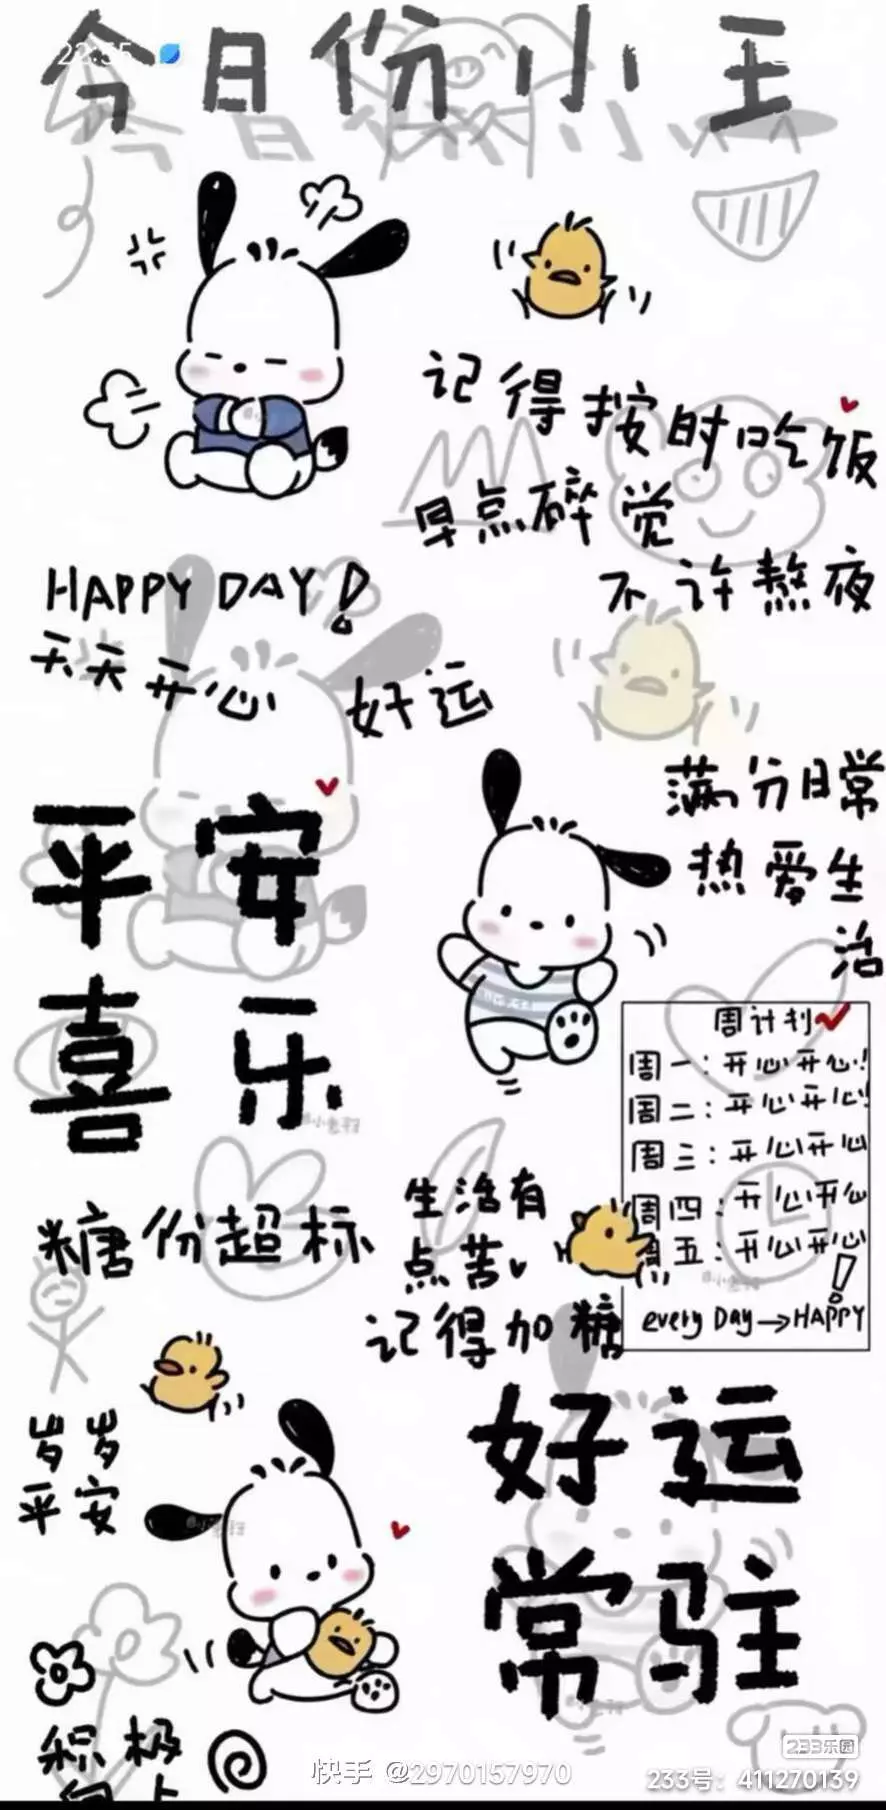 今日份小王
22:55
记得按时吃饭
早点碎觉
不许熬夜
HAPPY DAY!
天天开心
好运
平安
喜乐
满分日常
热爱生
活
周计划
周一:开心开心!
周二:开心开心!
周三:开心开心
周四:开心开心
周五:开心开心!
every DAy→HAPPY
糖份超标
生活有
点苦
记得加糖
岁岁
平安
好运
常驻
积极
向上
快手 @2970157970
233乐园
233号:411270139